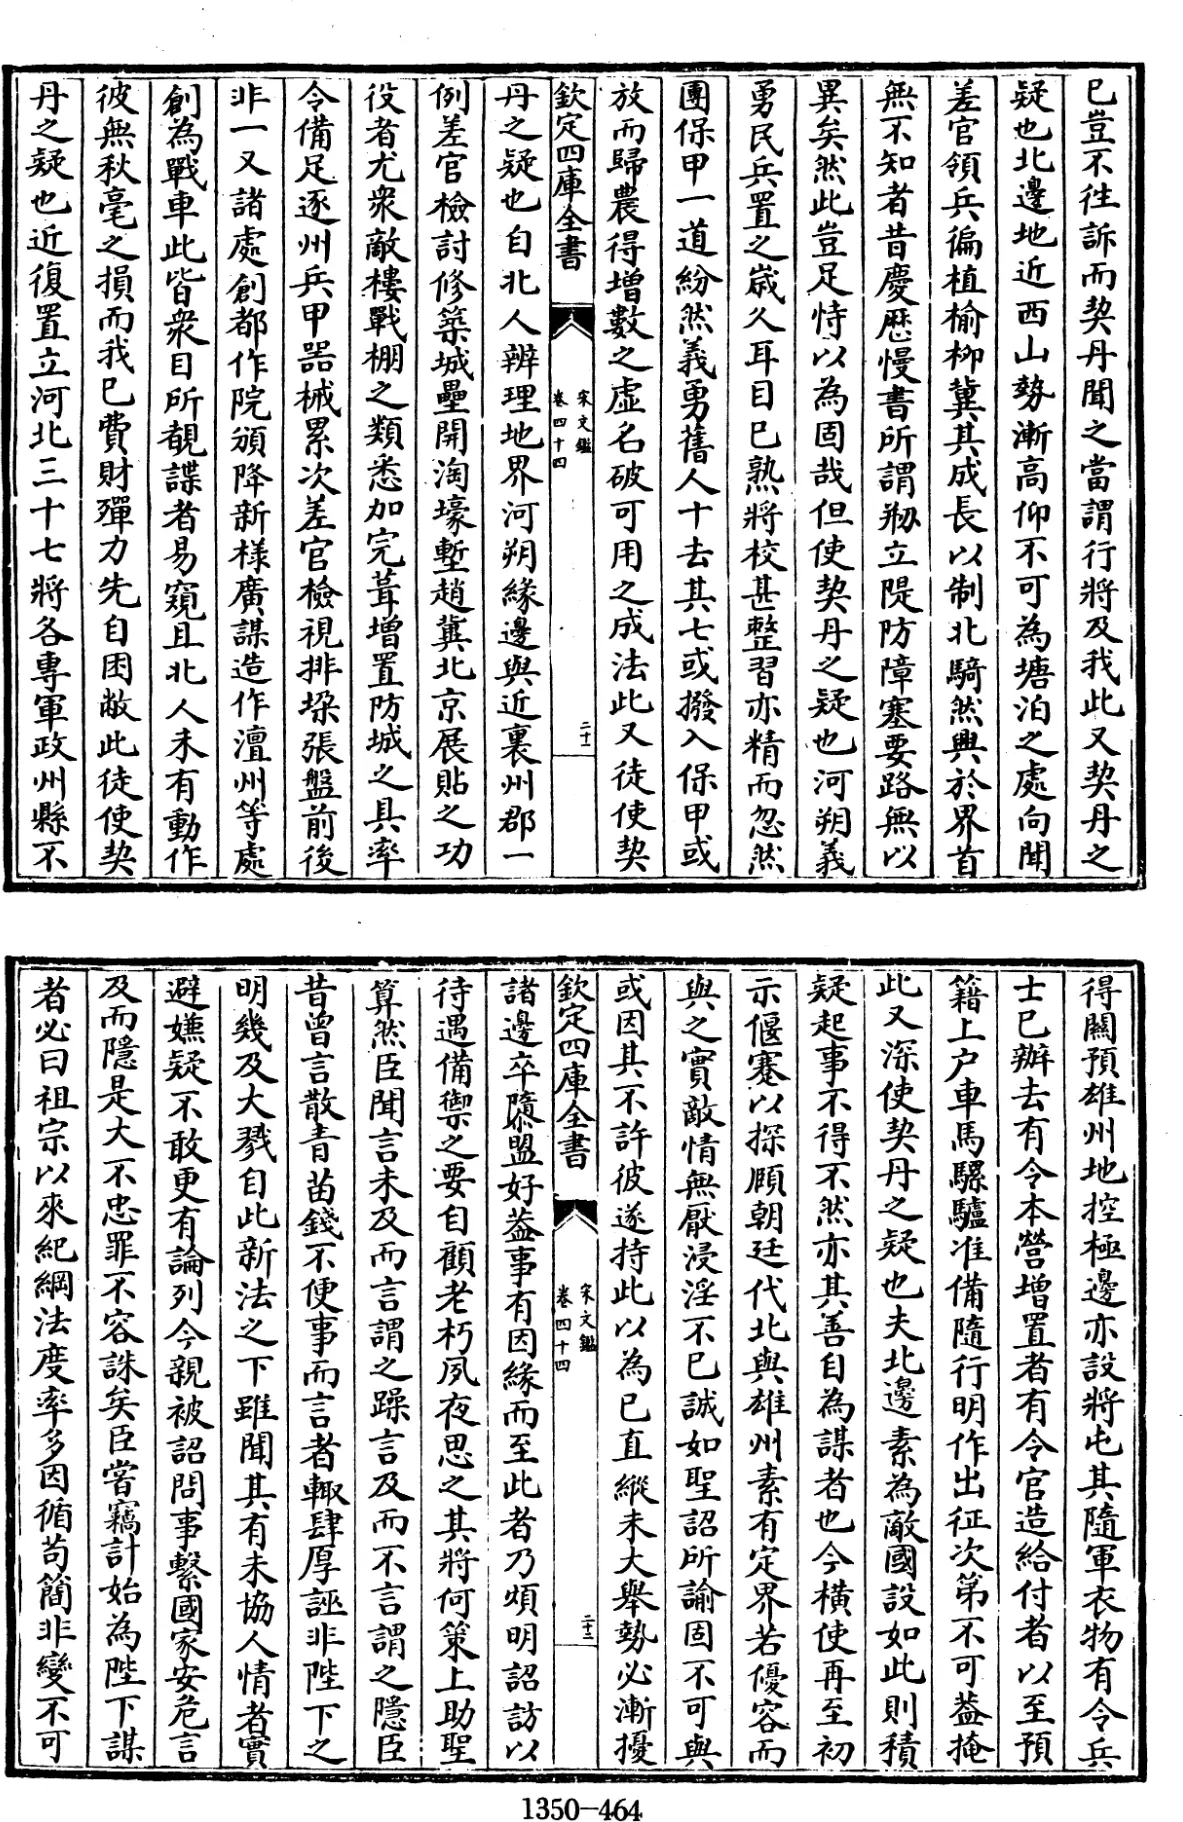 已豈不往訴而契丹聞之當謂行將及我此又契丹之
疑也北邊地近西山勢漸高仰不可為塘泊之處向聞
差官領兵徧植榆柳冀其成長以制北騎然興於界首
無不知者昔慶厯慢書所謂剏立隄防障塞要路無以
異矣然此豈足恃以為固哉但使契丹之疑也河朔義
勇民兵置之嵗久耳目已熟將校甚整習亦精而忽然
團保甲一道紛然義勇舊人十去其七或撥入保甲或
放而歸農得增數之虛名破可用之成法此又徒使契
欽定四庫全書
宋文鑑
卷四十四
二十一
丹之疑也自北人辨理地界河朔緣邊與近裏州郡一
例差官檢討修築城壘開淘壕塹趙冀北京展貼之功
役者尤衆敵樓戰棚之類悉加完葺增置防城之具率
令備足逐州兵甲器械累次差官檢視排垜張盤前後
非一又諸處創都作院頒降新様廣謀造作澶州等處
創為戰車此皆衆目所覩諜者易窺且北人未有動作
彼無秋毫之損而我已費財殫力先自困敝此徒使契
丹之疑也近復置立河北三十七將各專軍政州縣不
得關預雄州地控極邊亦設將屯其隨軍衣物有令兵
士已辦去有令本營增置者有令官造給付者以至預
籍上户車馬騾驢准備隨行明作出征次第不可蓋掩
此又深使契丹之疑也夫北邊素為敵國設如此則積
疑起事不得不然亦其善自為謀者也今橫使再至初
示偃蹇以探頋朝廷代北與雄州素有定界若優容而
與之實敵情無厭浸淫不已誠如聖詔所諭固不可與
或因其不許彼遂持此以為已直縱未大舉勢必漸擾
欽定四庫全書
宋文鑑
卷四十四
二十二
諸邊卒隳盟好蓋事有因緣而至此者乃煩明詔訪以
待遇備禦之要自顧老朽夙夜思之其將何策上助聖
算然臣聞言未及而言謂之躁言及而不言謂之隱臣
昔曽言散青苗錢不便事而言者輙肆厚誣非陛下之
明幾及大戮自此新法之下雖聞其有未協人情者實
避嫌疑不敢更有論列今親被詔問事繫國家安危言
及而隱是大不忠罪不容誅矣臣嘗竊計始為陛下謀
者必曰祖宗以來紀綱法度率多因循苟簡非變不可
1350-464